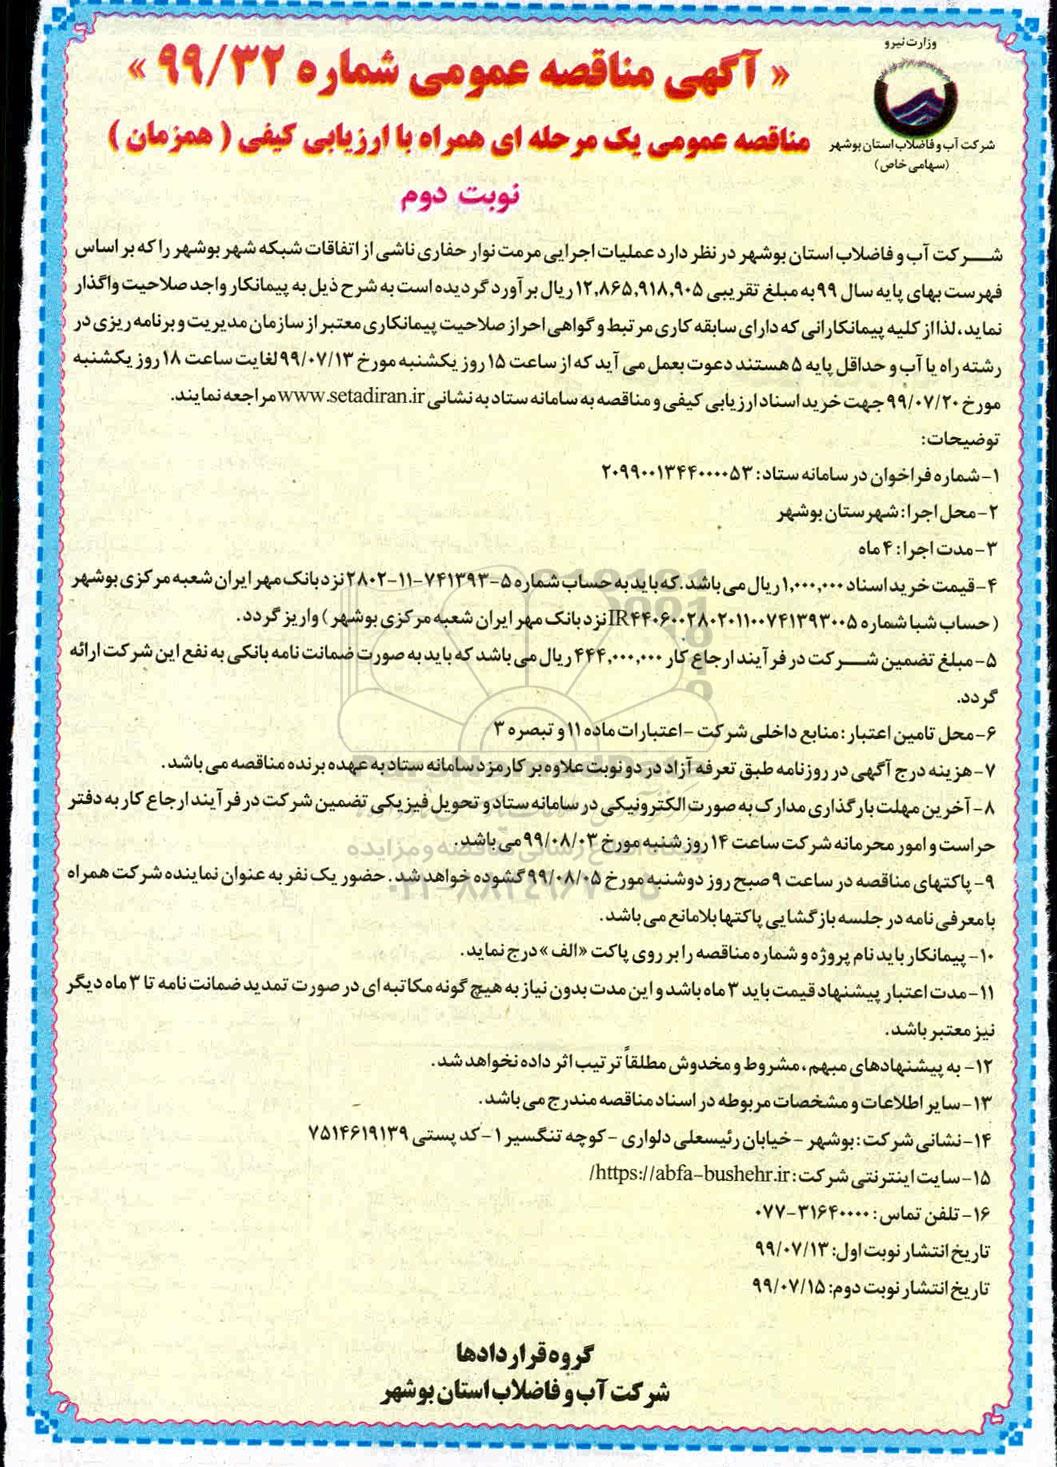 وزارت نیرو
شرکت آب و فاضلاب استان بوشهر
(سهامی خاص)
« آگهی مناقصه عمومی شماره ۹۹/۳۲ »
مناقصه عمومی یک مرحله ای همراه با ارزیابی کیفی ( همزمان )
نوبت دوم
شرکت آب و فاضلاب استان بوشهر در نظر دارد عملیات اجرایی مرمت نوار حفاری ناشی از اتفاقات شبکه شهر بوشهر را که بر اساس
فهرست بهای پایه سال ۹۹ به مبلغ تقریبی ۱۲,۸۶۵,۹۱۸,۹۰۵ ریال برآورد گردیده است به شرح ذیل به پیمانکار واجد صلاحیت واگذار
نماید، لذا از کلیه پیمانکارانی که دارای سابقه کاری مرتبط و گواهی احراز صلاحیت پیمانکاری معتبر از سازمان مدیریت و برنامه ریزی در
رشته راه یا آب و حداقل پایه ۵ هستند دعوت بعمل می آید که از ساعت ۱۵ روز یکشنبه مورخ ۹۹/۰۷/۱۳ لغایت ساعت ۱۸ روز یکشنبه
مورخ ۹۹/۰۷/۲۰ جهت خرید اسناد ارزیابی کیفی و مناقصه به سامانه ستاد به نشانی www.setadiran.ir مراجعه نمایند.
توضیحات:
۱- شماره فراخوان در سامانه ستاد: ۲۰۹۹۰۰۱۳۴۴۰۰۰۰۵۳
۲- محل اجرا: شهرستان بوشهر
۳- مدت اجرا: ۴ ماه
۴- قیمت خرید اسناد ۱,۰۰۰,۰۰۰ ریال می باشد. که باید به حساب شماره ۵-۷۴۱۳۹۳-۱۱-۲۸۰۲ نزد بانک مهر ایران شعبه مرکزی بوشهر
( حساب شبا شماره IR۴۴۰۶۰۰۲۸۰۲۰۱۱۰۰۷۴۱۳۹۳۰۰۵ نزد بانک مهر ایران شعبه مرکزی بوشهر ) واریز گردد.
۵- مبلغ تضمین شرکت در فرآیند ارجاع کار ۴۴۴,۰۰۰,۰۰۰ ریال می باشد که باید به صورت ضمانت نامه بانکی به نفع این شرکت ارائه
گردد.
۶- محل تامین اعتبار: منابع داخلی شرکت - اعتبارات ماده ۱۱ و تبصره ۳
۷- هزینه درج آگهی در روزنامه طبق تعرفه آزاد در دو نوبت علاوه بر کارمزد سامانه ستاد به عهده برنده مناقصه می باشد.
۸- آخرین مهلت بارگذاری مدارک به صورت الکترونیکی در سامانه ستاد و تحویل فیزیکی تضمین شرکت در فرآیند ارجاع کار به دفتر
حراست و امور محرمانه شرکت ساعت ۱۴ روز شنبه مورخ ۹۹/۰۸/۰۳ می باشد.
۹- پاکتهای مناقصه در ساعت ۹ صبح روز دوشنبه مورخ ۹۹/۰۸/۰۵ گشوده خواهد شد. حضور یک نفر به عنوان نماینده شرکت همراه
با معرفی نامه در جلسه بازگشایی پاکتها بلامانع می باشد.
۱۰- پیمانکار باید نام پروژه و شماره مناقصه را بر روی پاکت «الف» درج نماید.
۱۱- مدت اعتبار پیشنهاد قیمت باید ۳ ماه باشد و این مدت بدون نیاز به هیچ گونه مکاتبه ای در صورت تمدید ضمانت نامه تا ۳ ماه دیگر
نیز معتبر باشد.
۱۲- به پیشنهادهای مبهم، مشروط و مخدوش مطلقاً ترتیب اثر داده نخواهد شد.
۱۳- سایر اطلاعات و مشخصات مربوطه در اسناد مناقصه مندرج می باشد.
۱۴- نشانی شرکت: بوشهر - خیابان رئیسعلی دلواری - کوچه تنگسیر ۱ - کد پستی ۷۵۱۴۶۱۹۱۳۹
۱۵- سایت اینترنتی شرکت: https://abfa-bushehr.ir/
۱۶- تلفن تماس: ۰۷۷-۳۱۶۴۰۰۰۰
تاریخ انتشار نوبت اول: ۹۹/۰۷/۱۳
تاریخ انتشار نوبت دوم: ۹۹/۰۷/۱۵
گروه قراردادها
شرکت آب و فاضلاب استان بوشهر